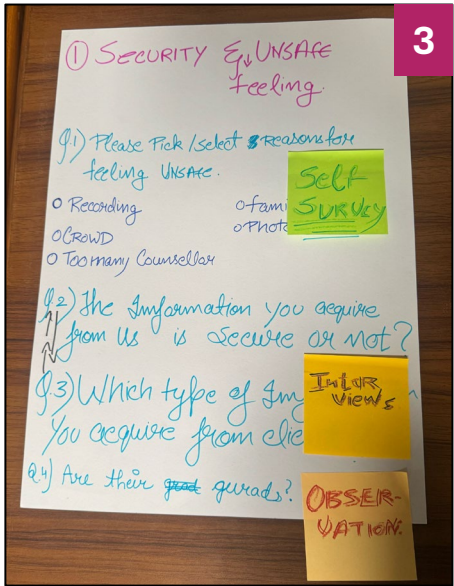 3
① SECURITY & UNSAFE
feeling.
Q.1) Please Pick / select Reasons for
feeling UNSAFE.
Self
SURVEY
o Recording
o fami
o CROWD
o Phot
o Too many Counsellar
Q.2) The Imformation you acquire
from us is Secure or not?
Q.3) Which type of Im
You acquire from clie
IntaR
views
Q4) Are their gurads?
OBSER-
VATION.